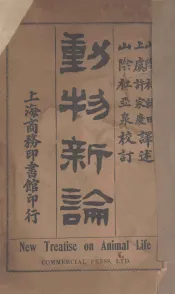 上虞許家慶
譯述
山陰杜亞泉校訂
動物新論
上海商務印書館印行
New Treatise on Animal Life
COMMERCIAL PRESS, LTD.